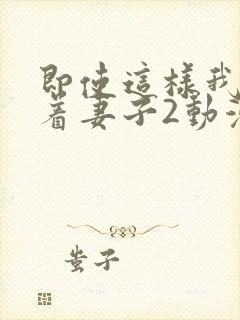 即使這樣我
著妻子2動
蚩子